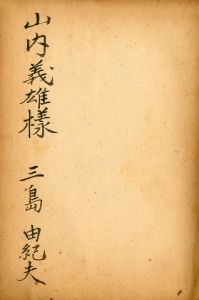 山内義雄様
三島由紀夫